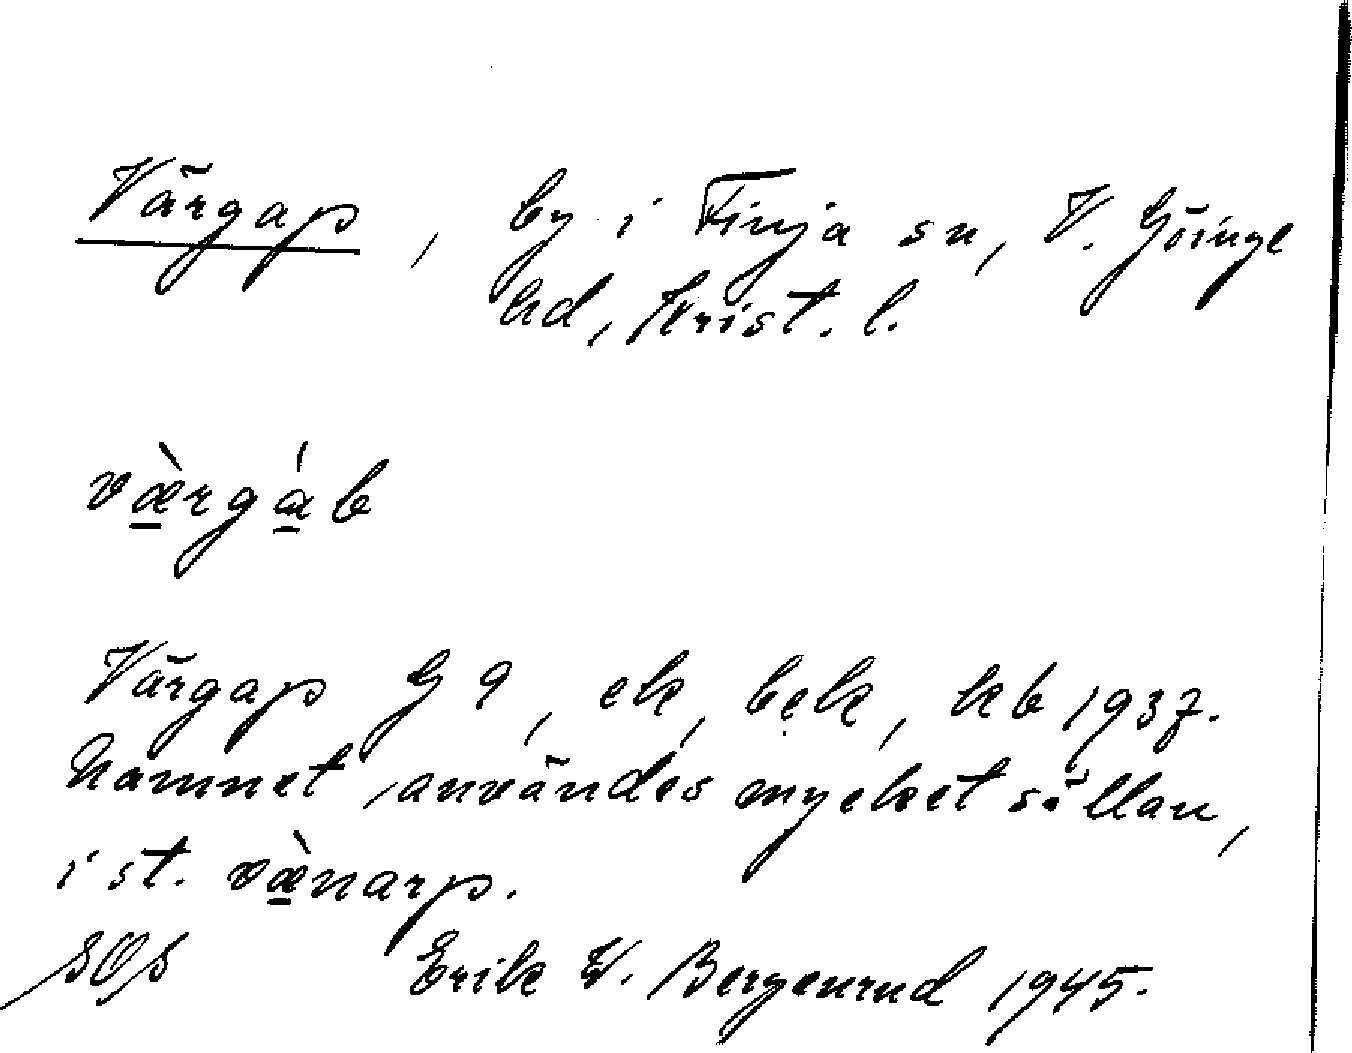 Vårgap, by i Finja sn, V. Göinge
hd, Krist. l.
væ̱̀rgá̱b
Vårgap G 9, ek, bek, kb 1937.
Namnet användes mycket sällan,
i st. væ̱̀narp.
Erik W. Bergenrud 1945.